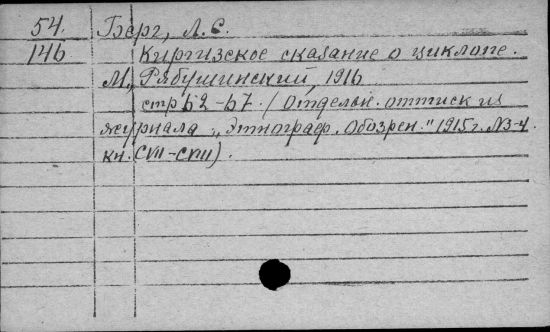 54. Берг, Л. С.
146 Киргизское сказание о циклопе.
М., Рябушинский, 1916
стр 62-67. (Отдельн. оттиск из
журнала „Этнограф. Обозрен." 1915 г. N3-4
кн. CVII-CVIII).